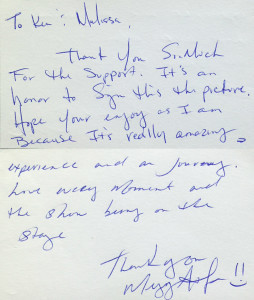 To Ken & Melissa,
Thank you So Much
For the Support. It's an
honor to Sign this the picture.
Hope your enjoy as I am
Because It's really amazing
experience and an Journey.
Love every Moment and
the show being on the
stage
Thank you
!!